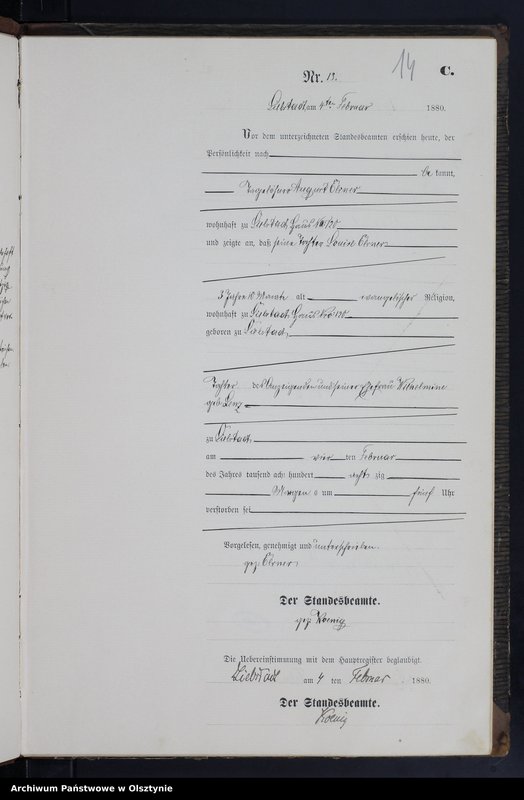 14
C.
Nr. 13.
Liebstadt am 4ten Februar 1880.
Vor dem unterzeichneten Standesbeamten erschien heute, der
Persönlichkeit nach
be kannt,
Tagelöhner August
wohnhaft zu Liebstadt Haus No
und zeigte an, daß seine Tochter Louise
3 Jahre 10 Monate alt evangelischer Religion,
wohnhaft zu Liebstadt Haus No
geboren zu Liebstadt,
Tochter des Anzeigenden und seiner Ehefrau Wilhelmine
geb.
zu Liebstadt
am vier ten Februar
des Jahres tausend acht hundert acht zig
Morgen s um fünf Uhr
verstorben sei
Vorgelesen, genehmigt und unterschrieben.
gez.
Der Standesbeamte.
gez. Koenig
Die Uebereinstimmung mit dem Hauptregister beglaubigt.
Liebstadt am 4 ten Februar 1880.
Der Standesbeamte.
Koenig
Archiwum Państwowe w Olsztynie